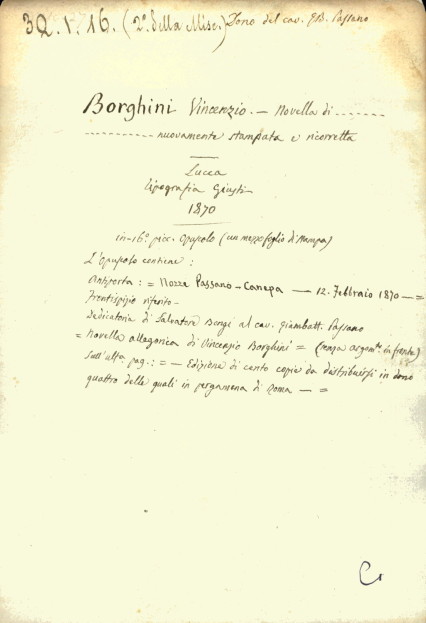 3Q. V. 16. (2º della Misc.) Dono del cav. GB. Passano
Borghini Vincenzio. — Novella di - - - - - - -
- - - - - - - - - - nuovamente stampata e ricorretta
Lucca
tipografia Giusti
1870
in-16º picc. Opuscolo (un mezzo foglio di stampa)
L'Opuscolo contiene :
Antiporta : = Nozze Passano - Canepa — 12. Febbraio 1870 — =
Frontispizio riferito -
Dedicatoria di Salvatore Bongi al cav. Giambatt. Passano
= Novella allegorica di Vincenzio Borghini = (senza argomto. in fronte)
Sull'ulta. pag. : = — Edizione di cento copie da distribuirsi in dono
quattro delle quali in pergamena di Roma — =